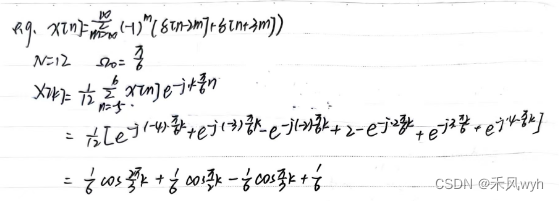 e.g. x[n]=∑_{m=-∞}^{∞}(-1)^m(δ[n-2m]+δ[n+3m])
N=12 Ω₀=π/6
X[k]=1/12 ∑_{n=-5}^{6} x[n]e^{-jkπ/6n}
=1/12[e^{-j(-4)π/6k}+e^{-j(-3)π/6k}-e^{-j(-2)π/6k}+2-e^{-j2π/6k}+e^{-j3π/6k}+e^{-j4π/6k}]
=1/6cos2π/3k+1/6cosπ/2k-1/6cosπ/3k+1/6
CSDN @禾风wyh